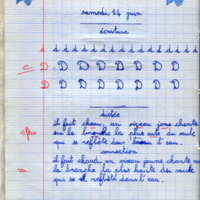 samedi, 14 juin
écriture
d d d d d d d d d d d d d
C D D D D D D D D
D D D D D D D D D
dictée
il fait cheau, un oiseau jone chante
sur la branche la plus aute du saule
qui se reflète dans l'eau.
correction
il fait chaud, un oiseau jaune chante sur
la branche la plus haute des saule
qui se reflète dans l'eau.